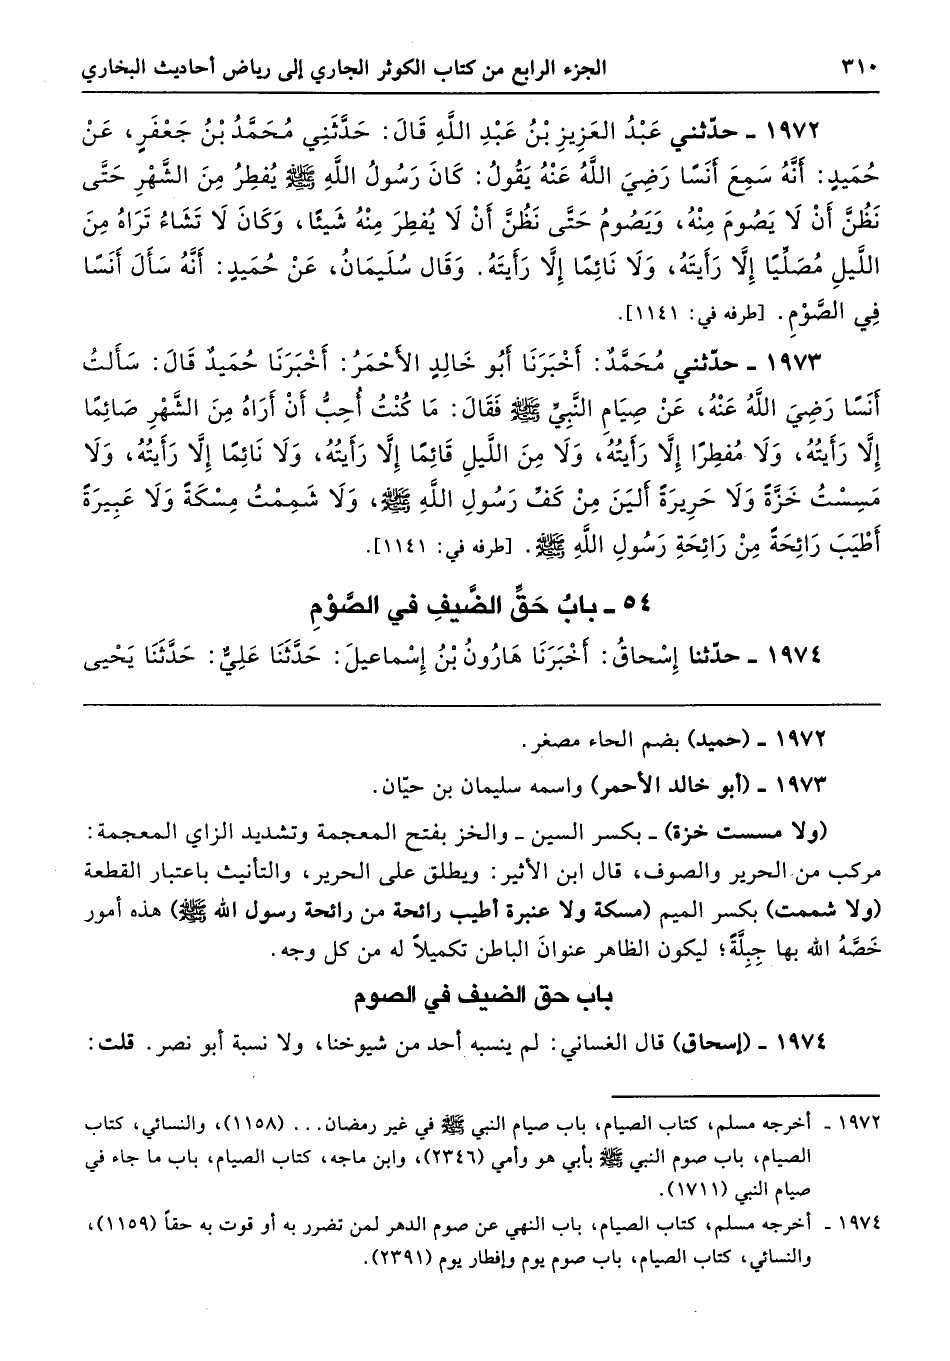 ٣١٠ الجزء الرابع من كتاب الكوثر الجاري إلى رياض أحاديث البخاري
١٩٧٢ ـ حدّثني عَبْدُ العَزِيزِ بْنُ عَبْدِ اللَّهِ قَالَ: حَدَّثَنِي مُحَمَّدُ بْنُ جَعْفَرٍ، عَنْ
حُمَيدٍ: أَنَّهُ سَمِعَ أَنَسًا رَضِيَ اللَّهُ عَنْهُ يَقُولُ: كَانَ رَسُولُ اللَّهِ ﷺ يُفطِرُ مِنَ الشَّهْرِ حَتَّى
نَظُنَّ أَنْ لَا يَصُومَ مِنْهُ، وَيَصُومُ حَتَّى نَظُنَّ أَنْ لَا يُفطِرَ مِنْهُ شَيئًا، وَكَانَ لَا تَشَاءُ تَرَاهُ مِنَ
اللَّيلِ مُصَلِّيًا إِلَّا رَأَيتَهُ، وَلَا نَائِمًا إِلَّا رَأَيتَهُ. وَقَال سُلَيمَانُ، عَنْ حُمَيدٍ: أَنَّهُ سَأَلَ أَنَسًا
فِي الصَّوْمِ. [طرفه في: ١١٤١].
١٩٧٣ ـ حدّثني مُحَمَّدٌ: أَخْبَرَنَا أَبُو خَالِدٍ الأَحْمَرُ: أَخْبَرَنَا حُمَيدٌ قَالَ: سَأَلتُ
أَنَسًا رَضِيَ اللَّهُ عَنْهُ، عَنْ صِيَامِ النَّبِيِّ ﷺ فَقَالَ: مَا كُنْتُ أُحِبُّ أَنْ أَرَاهُ مِنَ الشَّهْرِ صَائِمًا
إِلَّا رَأَيتُهُ، وَلَا مُفطِرًا إِلَّا رَأَيتُهُ، وَلَا مِنَ اللَّيلِ قَائِمًا إِلَّا رَأَيتُهُ، وَلَا نَائِمًا إِلَّا رَأَيتُهُ، وَلَا
مَسِسْتُ خَزَّةً وَلَا حَرِيرَةً أَليَنَ مِنْ كَفِّ رَسُولِ اللَّهِ ﷺ، وَلَا شَمِمْتُ مِسْكَةً وَلَا عَبِيرَةً
أَطْيَبَ رَائِحَةً مِنْ رَائِحَةِ رَسُولِ اللَّهِ ﷺ. [طرفه في: ١١٤١].
٥٤ ـ بابُ حَقِّ الضَّيفِ في الصَّوْمِ
١٩٧٤ ـ حدّثنا إِسْحاقُ: أَخْبَرَنَا هَارُونُ بْنُ إِسْماعيلَ: حَدَّثَنَا عَلِيٌّ: حَدَّثَنَا يَحْيى
١٩٧٢ ـ (حميد) بضم الحاء مصغر.
١٩٧٣ ـ (أبو خالد الأحمر) واسمه سليمان بن حيّان.
(ولا مسست خزة) ـ بكسر السين ـ والخز بفتح المعجمة وتشديد الزاي المعجمة:
مركب من الحرير والصوف، قال ابن الأثير: ويطلق على الحرير، والتأنيث باعتبار القطعة
(ولا شممت) بكسر الميم (مسكة ولا عنبرة أطيب رائحة من رائحة رسول الله ﷺ) هذه أمور
خَصَّهُ الله بها جِبِلَّةً؛ ليكون الظاهر عنوانَ الباطن تكميلاً له من كل وجه.
باب حق الضيف في الصوم
١٩٧٤ ـ (إسحاق) قال الغساني: لم ينسبه أحد من شيوخنا، ولا نسبة أبو نصر. قلت:
١٩٧٢ ـ أخرجه مسلم، كتاب الصيام، باب صيام النبي ﷺ في غير رمضان... (١١٥٨)، والنسائي، كتاب
الصيام، باب صوم النبي ﷺ بأبي هو وأمي (٢٣٤٦)، وابن ماجه، كتاب الصيام، باب ما جاء في
صيام النبي (١٧١١).
١٩٧٤ ـ أخرجه مسلم، كتاب الصيام، باب النهي عن صوم الدهر لمن تضرر به أو قوت به حقاً (١١٥٩)،
والنسائي، كتاب الصيام، باب صوم يوم وإفطار يوم (٢٣٩١).